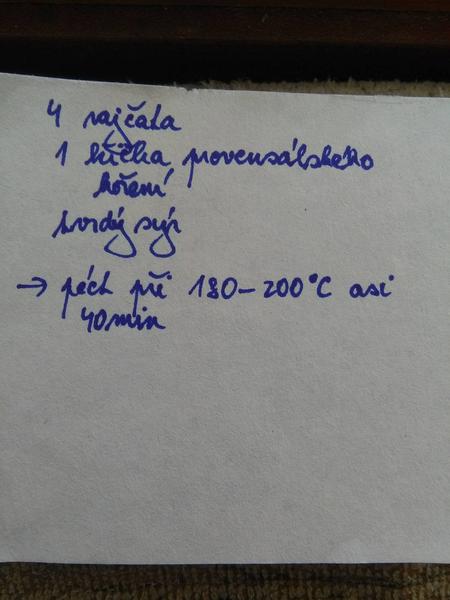 4 rajčata
1 lžička provensálského
koření
tvrdý sýr
→ péct při 180-200°C asi
40min